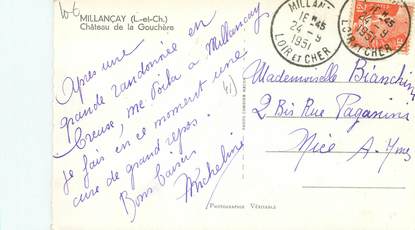 10€
MILLANÇAY (L.-et-Ch.)
Château de la Gouchère
Après une
grande randonnée en
Creuse, me voilà à Millançay
je fais en ce moment une
cure de grand repos.
Bons baisers
Micheline
41
PHOTOGRAPHIE VÉRITABLE
MILLANÇAY
1E H 45
24 - 9
1951
LOIR ET CHER
1E H 45
24 - 9
1951
LOIR ET CHER
Mademoiselle Bianchini
2 Bis Rue Paganini
Nice A-Mmes